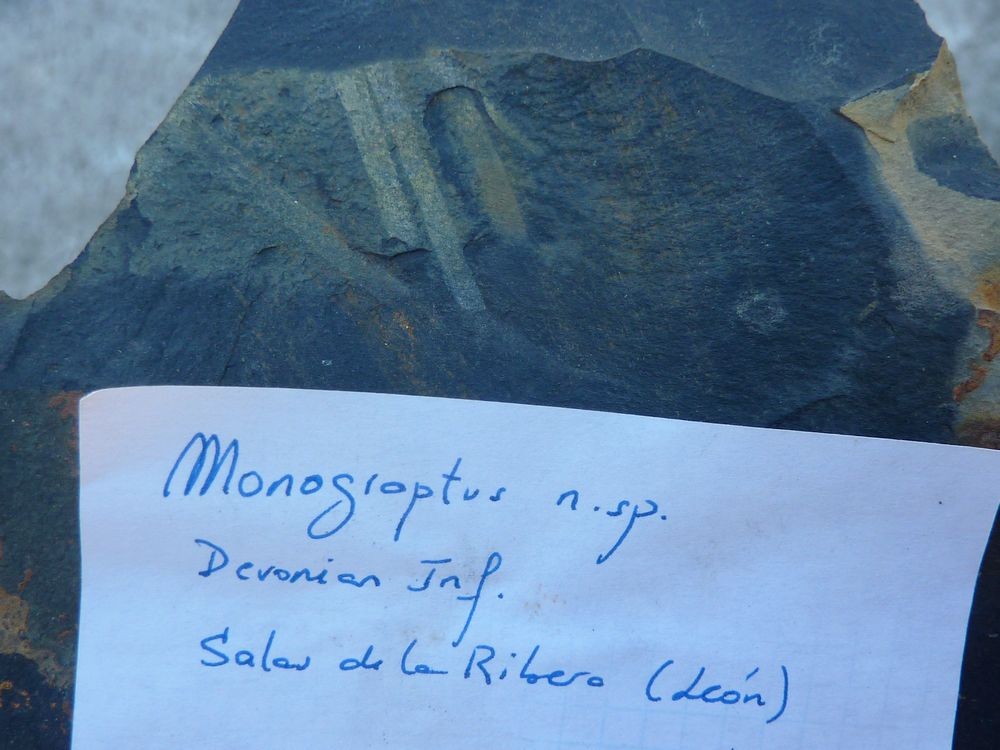 Monograptus n.sp.
Devonian Inf.
Salas de la Ribera (León)